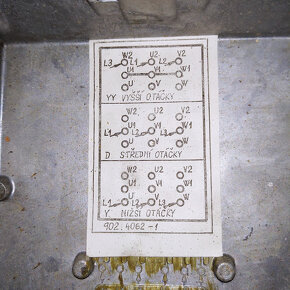 W2 U2 V2
L3 L1 L2
U1 V1 W1
U V W
YY VYŠŠÍ OTÁČKY
W2 U2 V2
L1 L2 L3
U V W
D STŘEDNÍ OTÁČKY
W2 U2 V2
L1 L2 L3
U V W
Y NIŽŠÍ OTÁČKY
902.4062-1